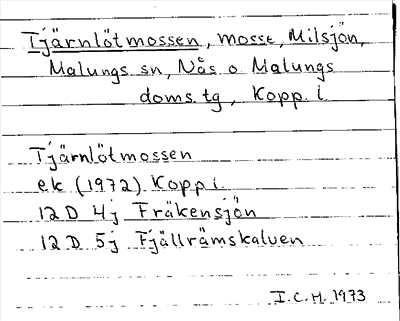 Tjärnlötmossen, mosse, Milsjön,
Malungs sn, Nås o Malungs
doms. tg, Kopp. l
Tjärnlötmossen
ek (1972) Kopp l.
12 D 4j Fräkensjön
12 D 5j Fjällrämskalven
I.C.H. 1973